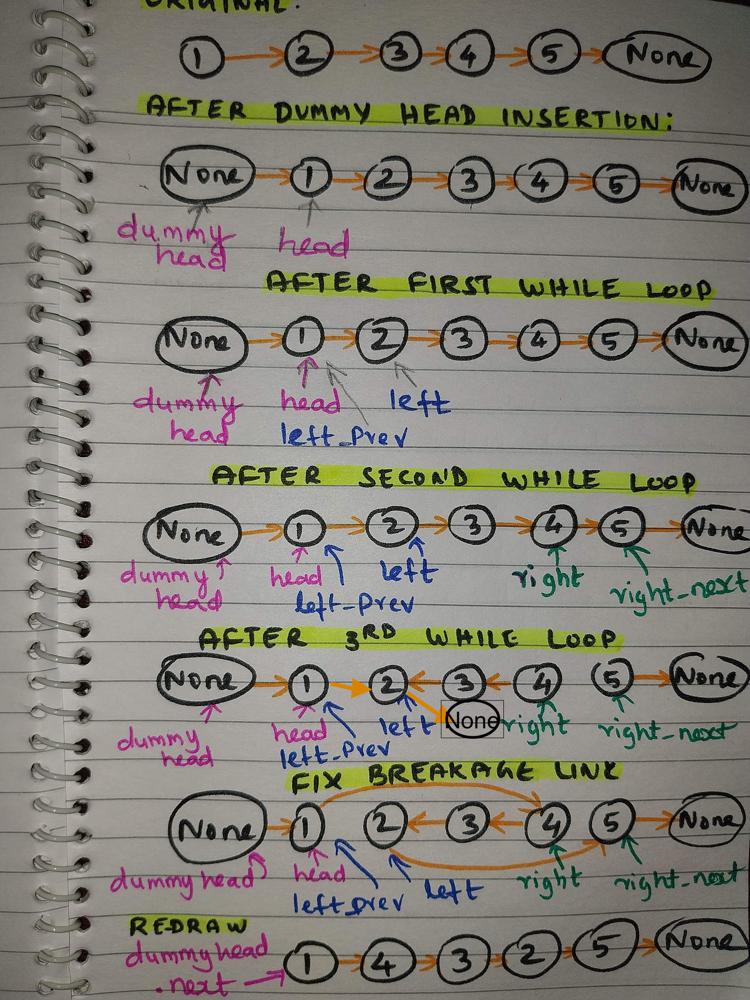 ORIGINAL:
1 2 3 4 5 None
AFTER DUMMY HEAD INSERTION:
None 1 2 3 4 5 None
dummy head
head
AFTER FIRST WHILE LOOP
None 1 2 3 4 5 None
dummy head left
head left_prev
AFTER SECOND WHILE LOOP
None 1 2 3 4 5 None
dummy head left right right_next
head left_prev
AFTER 3RD WHILE LOOP
None 1 2 3 4 5 None
None
dummy head left right right_next
head left_prev
FIX BREAKAGE LINK
None 1 2 3 4 5 None
dummy head head left right right_next
left_prev
REDRAW
dummy head
.next 1 4 3 2 5 None